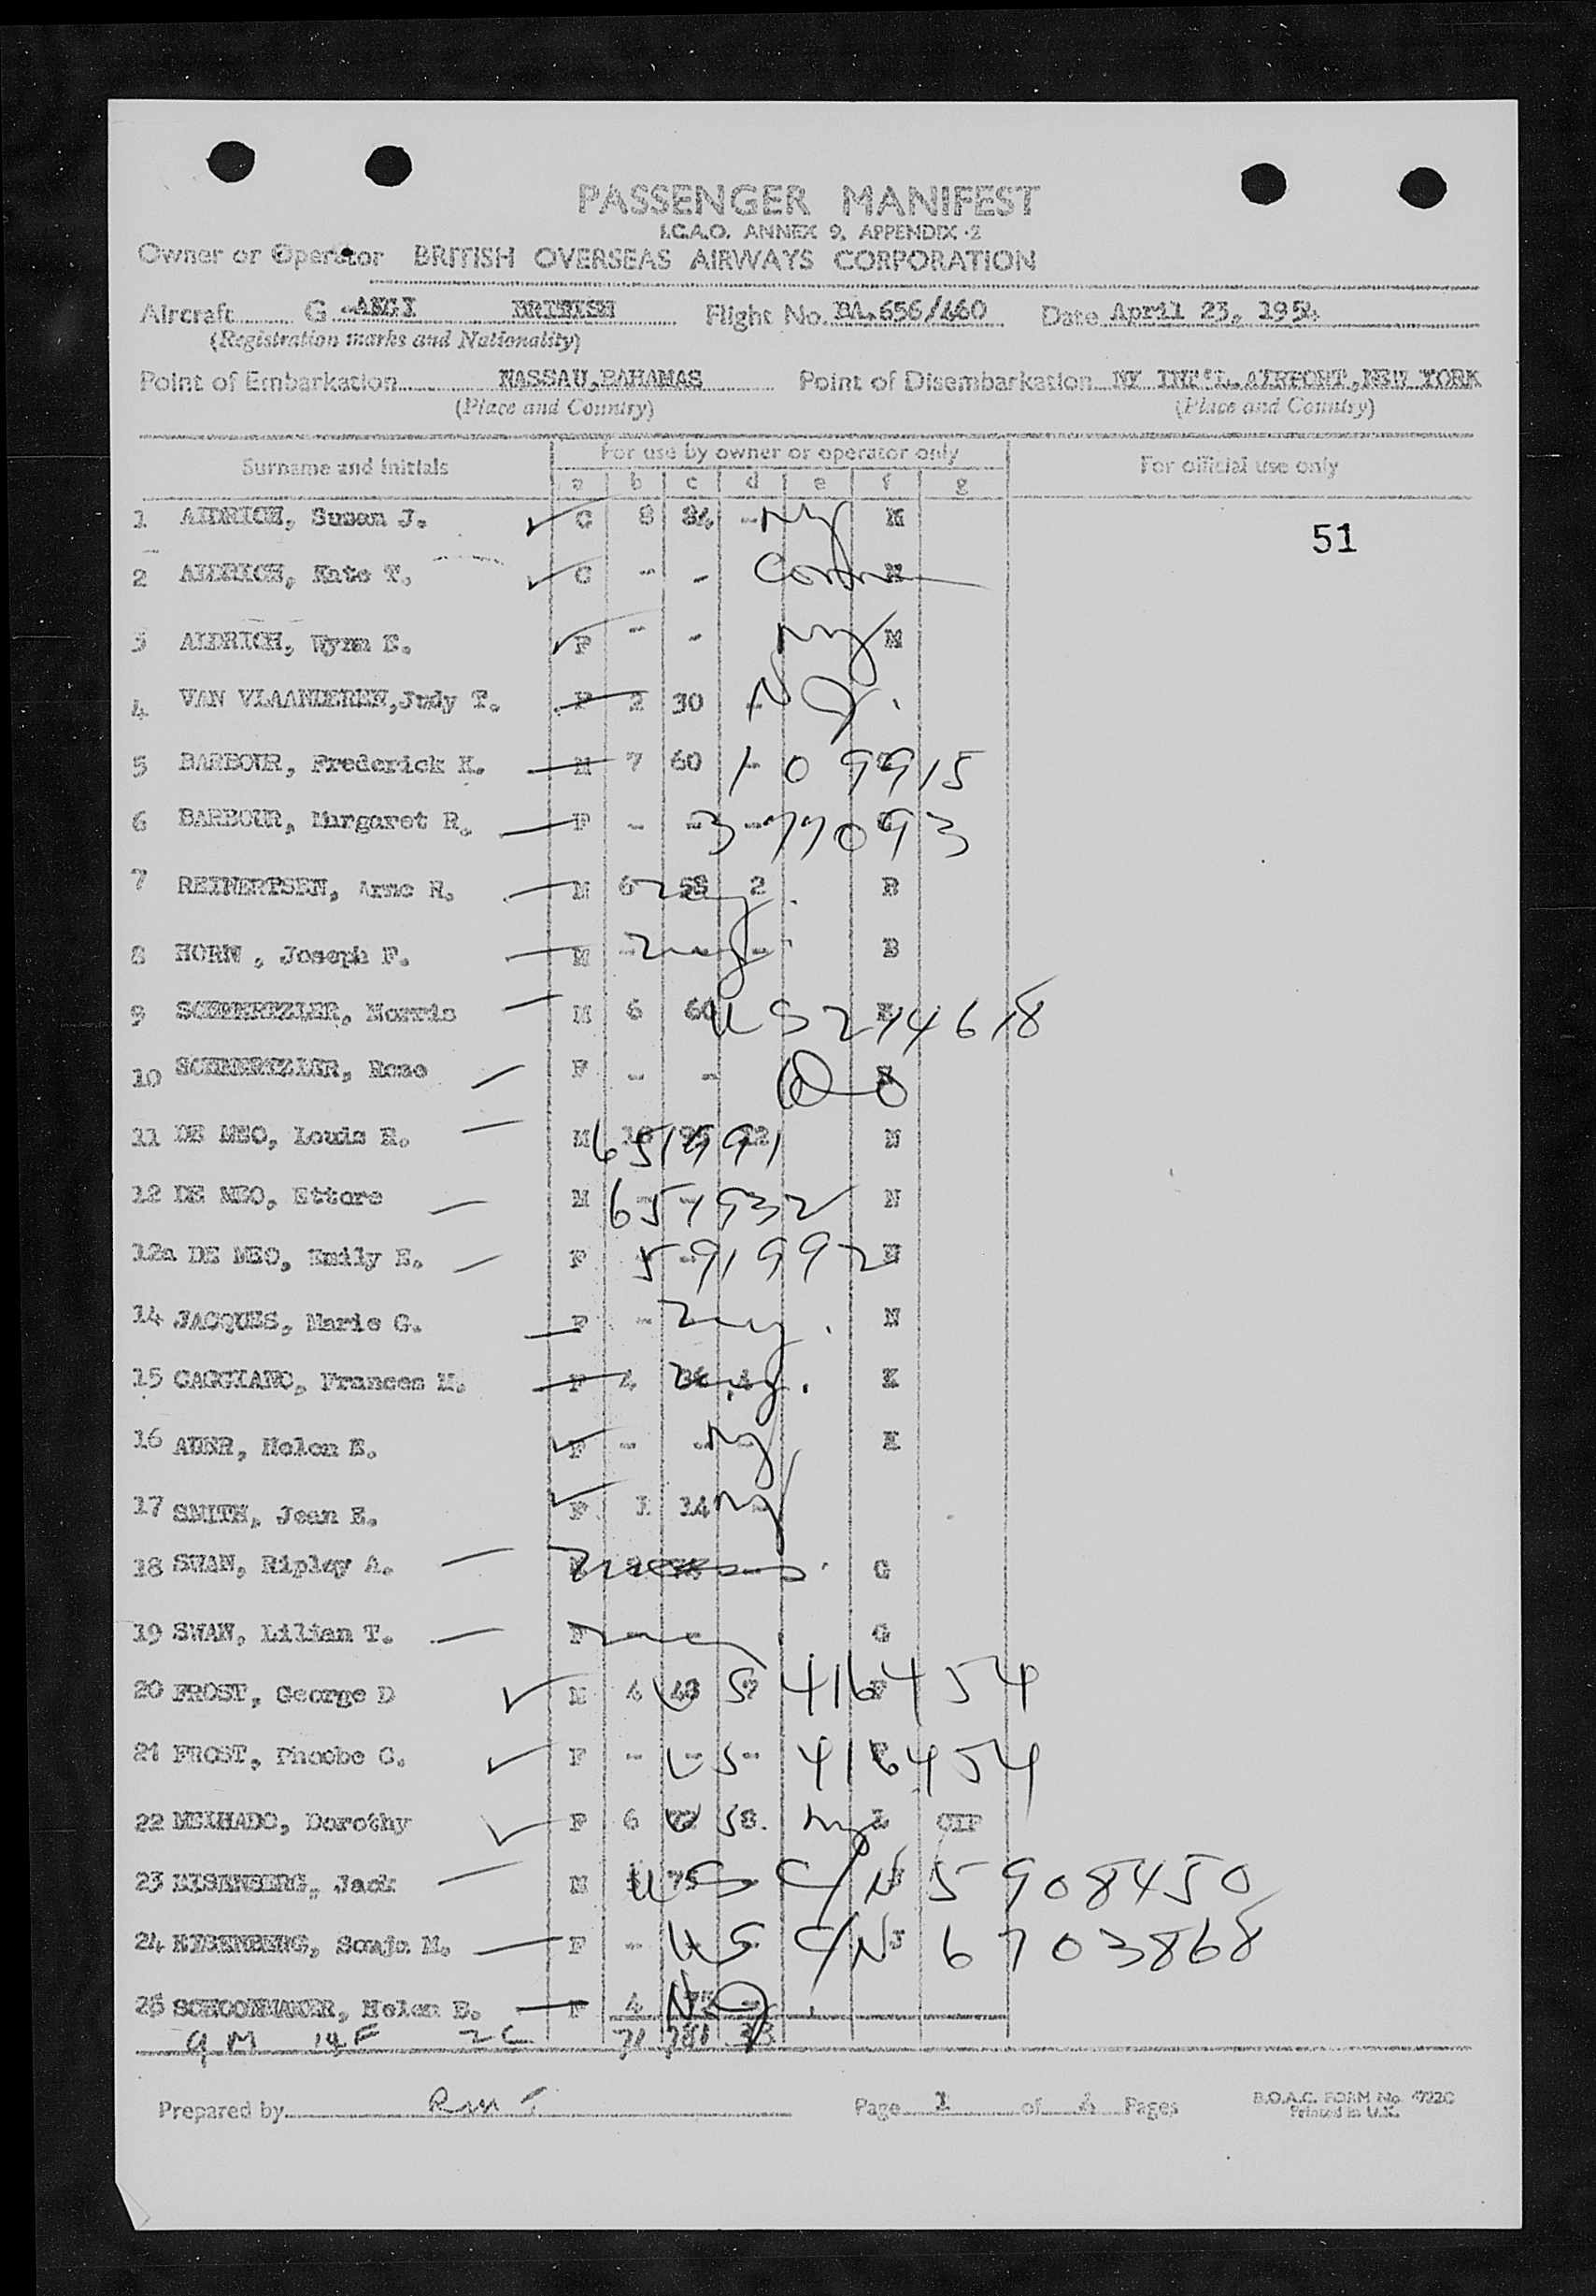 PASSENGER MANIFEST
I.C.A.O. ANNEX 9, APPENDIX 2
Owner or Operator BRITISH OVERSEAS AIRWAYS CORPORATION
Aircraft G BRITISH Flight No. BA.656/460 Date April 23, 1954
(Registration marks and Nationality)
Point of Embarkation NASSAU,BAHAMAS Point of Disembarkation NY INT'L.AIRPORT,NEW YORK
(Place and Country) (Place and Country)
Surname and initials For use by owner or operator only For official use only
a b c d e f g
1 ALDRICH, Susan J. C 8 84 - NY M
51
2 ALDRICH, Kate T. C - - Conn M
3 ALDRICH, Wynn E. F - - NY M
4 VAN VLAANDEREN,Judy T. F 2 30 - NJ.
5 BARBOUR, Frederick K. M 7 60 - 109915
6 BARBOUR, Margaret R. F - - - 377093
7 REINERTSEN, Arne R. M 6 58 2 ny. B
8 HORN , Joseph F. M - - - ny B
9 Morris M 6 60 US214618
10 Rose F - - Do
11 DE MEO, Louis R. M 651991 N
12 DE MEO, Ettore M - - 651932 N
12a DE MEO, Emily E. F - - 591992 N
14 JACQUES, Marie G. F - ny. N
15 CAGGIANO, Frances M. F 4 ny. K
16 ADER, Helen E. F - - - NY K
17 SMITH, Jean E. F 1 14 - NY
18 SWAN, Ripley A. Mass. G
19 SWAN, Lilian T. F - - G
20 FROST, George D M 4 48 US 416454 F
21 FROST, Phoebe G. F - - - US 416454 F
22 MELHADO, Dorothy F 6 US 8. NY L CIP
23 EISENBERG, Jack M 75 US C/N 5908450
24 EISENBERG, Sonja M. F - - US C/N J 6703868
25 SCHOONMAKER, Helen B. F 4 - NJ.
9 M 14 F 2 C 71 781 38
Prepared by Page 1 of Pages B.O.A.C. FORM No. 4722C
Printed in U.K.